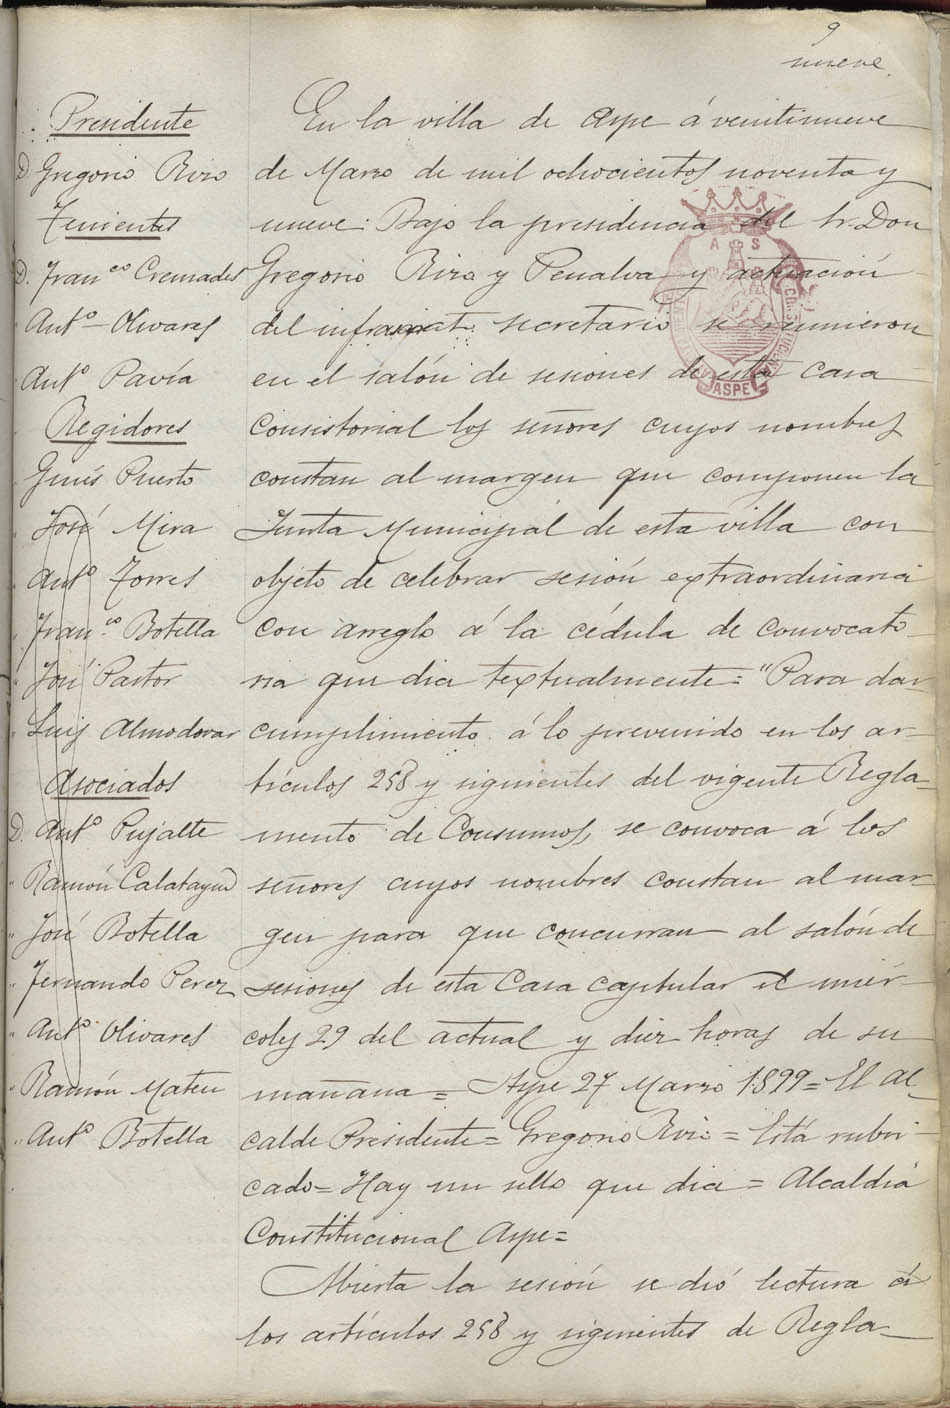 9
nueve.
Presidente
D. Gregorio Rizo
Tenientes
D. Fran.co Cremades
Ant.o Olivares
Ant.o Pavía
Regidores
Ginés Puerto
" José Mira
" Ant.o Torres
" Fran.co Botella
" José Pastor
" Luis Almodovar
Asociados
D. Ant.o Pujalte
" Ramón Calatayud
" José Botella
" Fernando Perez
" Ant.o Olivares
" Ramón Mateu
" Ant.o Botella
En la villa de Aspe á veintinueve
de Marzo de mil ochocientos noventa y
nueve: Bajo la presidencia del Sr. Don
Gregorio Rizo y Penalva y actuación
del infrascrito secretario se reunieron
en el salón de sesiones de esta Casa
Consistorial los señores cuyos nombres
constan al margen que componen la
Junta Municipal de esta villa con
objeto de celebrar sesión extraordinaria
con arreglo á la cédula de convocato-
ria que dice textualmente = "Para dar
cumplimiento á lo prevenido en los ar-
tículos 258 y siguientes del vigente Regla-
mento de Consumos, se convoca á los
señores cuyos nombres constan al mar-
gen para que concurran al salón de
sesiones de esta Casa capitular el miér-
coles 29 del actual y diez horas de su
mañana = Aspe 27 Marzo 1899 = El Al-
calde Presidente = Gregorio Rizo = Está rubri-
cado = Hay un sello que dice = Alcaldía
Constitucional Aspe =
Abierta la sesión se dió lectura á
los artículos 258 y siguientes de Regla-
A S
ASPE